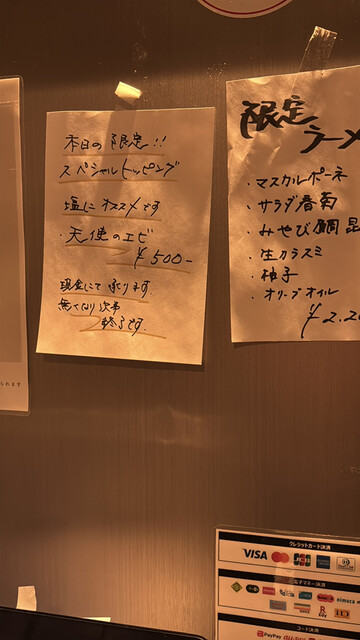 本日の限定!!
スペシャルトッピング
塩にオススメです
・天使のエビ
¥500-
現金にて承ります。
無くなり次第
終了です。
限定
ラーメ
・マスカルポーネ
・サラダ春菊
・みやび鯛 昆
・生カラスミ
・柚子
・オリーブオイル
¥2.2
られます
クレジットカード決済
VISA
JCB
電子マネー決済
nimoca
iD
コード決済
PayPay